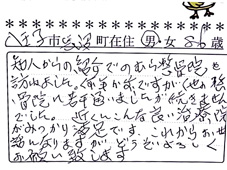 八王子市
町在住 男・女 歳
知人からの紹介でのむら整骨院を
訪ねました。何年か前ですがくせの整
骨院に若干通いましたが続きません
でした。近くにこんな良い治療院
がみつかり満足です。これからお世
話になりますが、どうぞよろしく
お願い致します